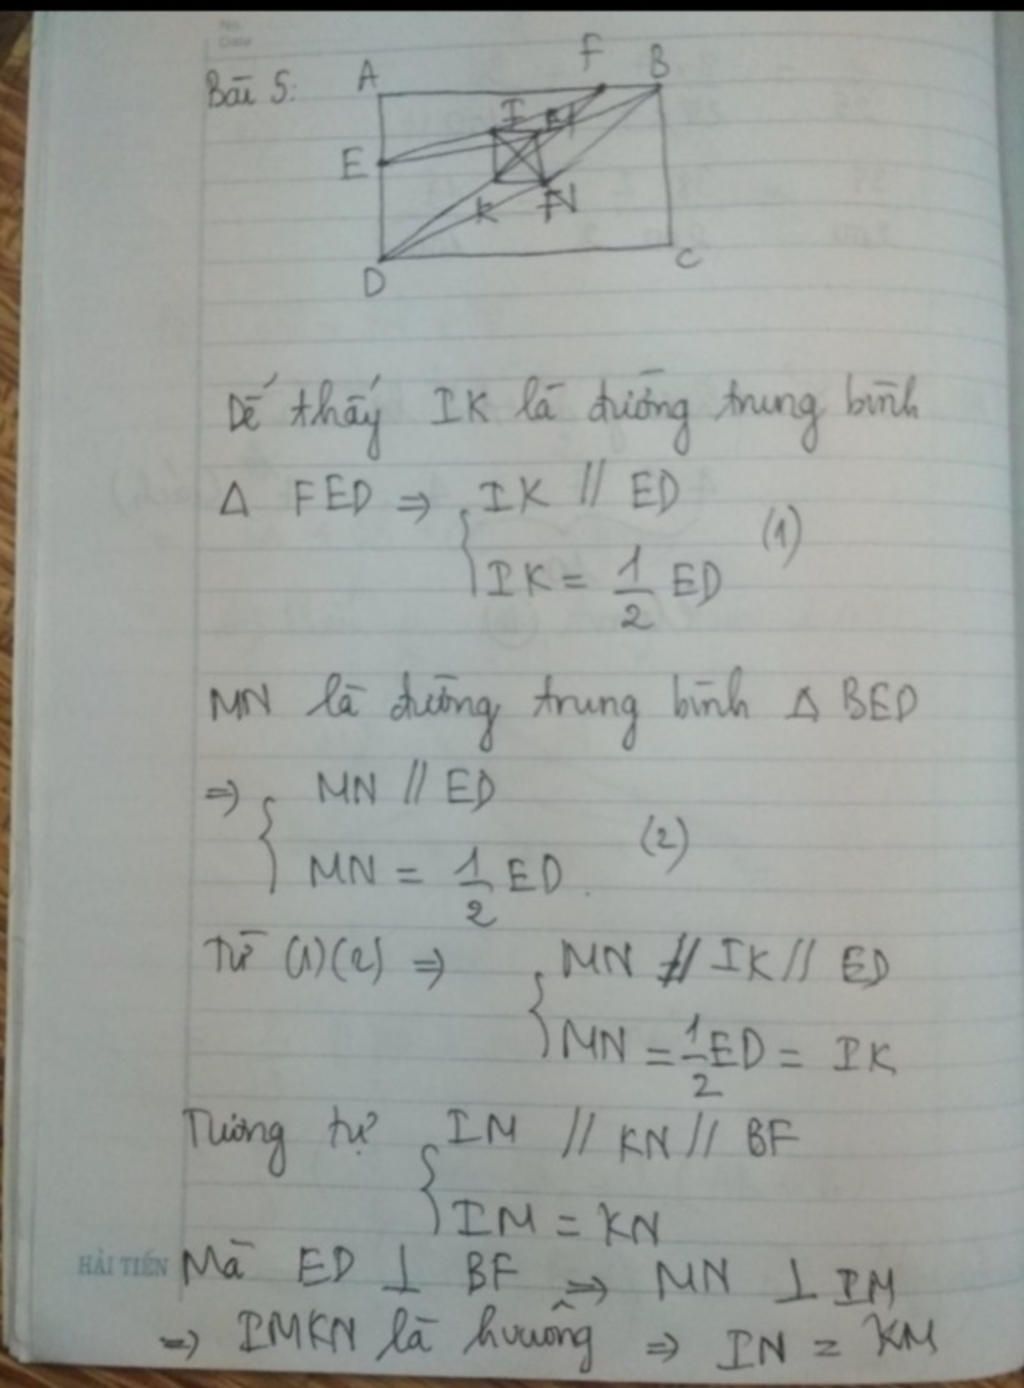 No.
Date
Bài 5:
A F B
I M
E
K N
D C
Dễ thấy IK là đường trung bình
Δ FED ⇒ { IK // ED
IK = 1/2 ED (1)
MN là đường trung bình Δ BED
⇒ { MN // ED
MN = 1/2 ED. (2)
Từ (1)(2) ⇒ { MN // IK // ED
MN = 1/2 ED = IK
Tương tự { IM // KN // BF
IM = KN
HẢI TIẾN Mà ED ⊥ BF ⇒ MN ⊥ IM
⇒ IMKN là hvuông ⇒ IN = KM